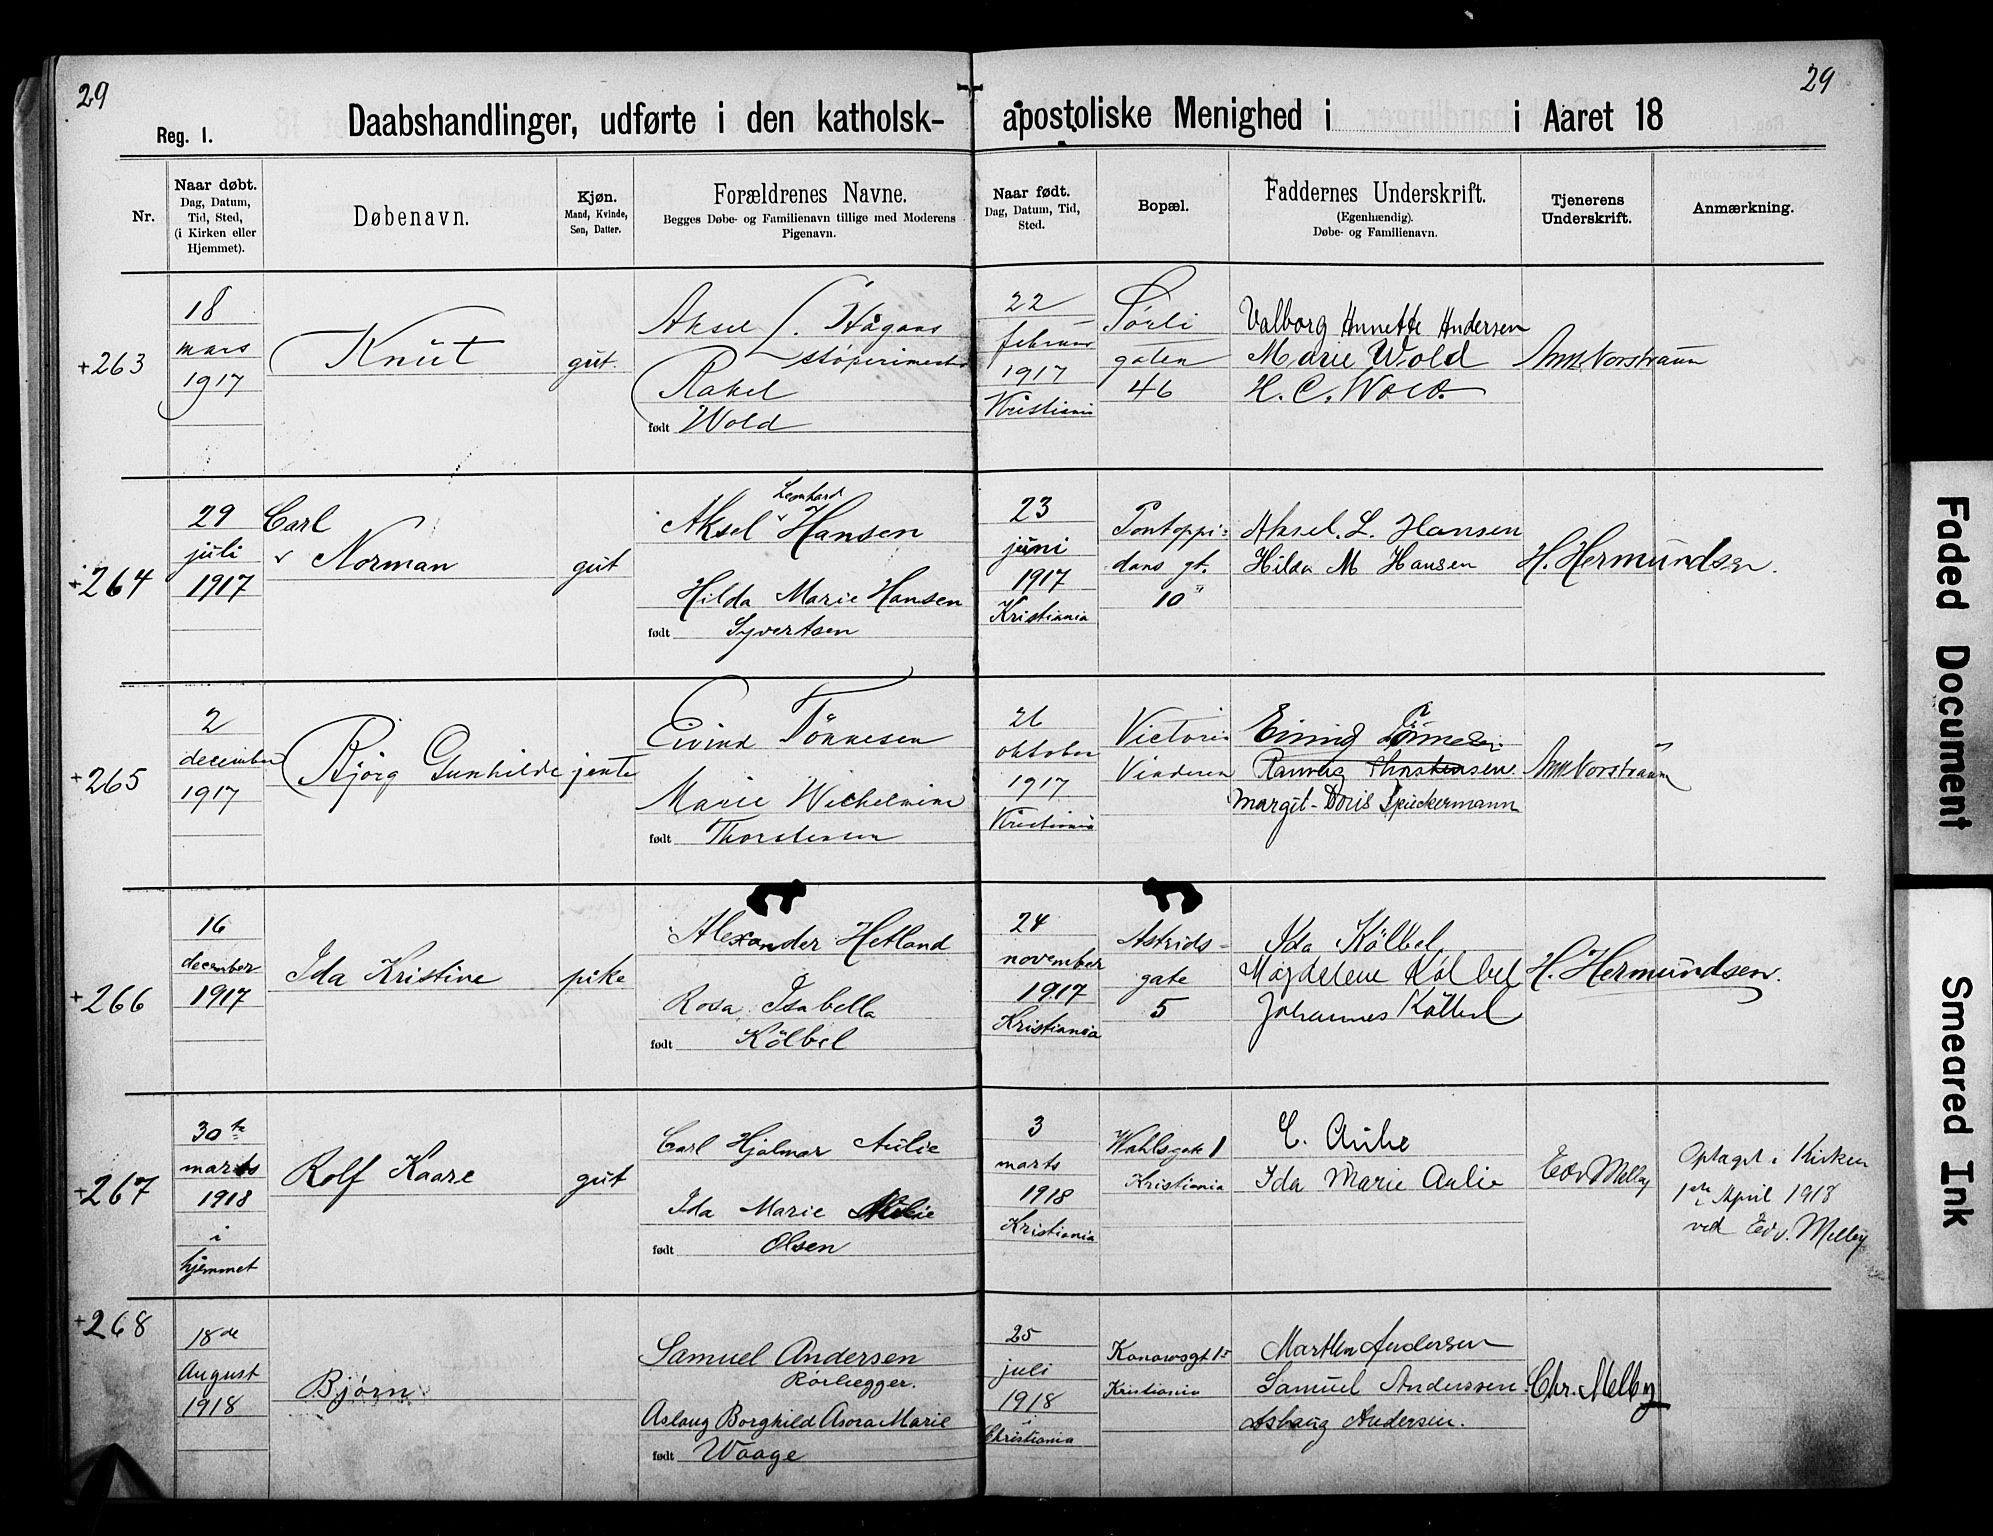 29
29
Reg. 1.
Daabshandlinger, udførte i den katholsk-
apostoliske Menighed i i Aaret 18
Nr.
Naar døbt.
Dag, Datum,
Tid, Sted,
(i Kirken eller
Hjemmet).
Døbenavn.
Kjøn.
Mand, Kvinde,
Søn, Datter.
Forældrenes Navne.
Begges Døbe- og Familienavn tillige med Moderens
Pigenavn.
Naar født.
Dag, Datum, Tid,
Sted.
Bopæl.
Faddernes Underskrift.
(Egenhændig).
Døbe- og Familienavn.
Tjenerens
Underskrift.
Anmærkning.
+263
18
mars
1917
Knut
gut.
Aksel
Rakel
født Wold
22
februar
1917
Kristiania
Sörli
gaten
46
Valborg Annette Andersen
Marie Wold
H. C. Wold.
+264
29
juli
1917
Carl
v Norman
gut
Leonhard
Aksel v Hansen
Hilda Marie Hansen
født Syvertsen
23
juni
1917
Kristiania
Pontoppi-
dans gt.
10"
Aksel. L. Hansen
Hilda M Hansen
H. Hermundsen.
+265
2
december
1917
Bjørg Gunhilde
jente
Eivind Tönnesen
Marie Wilhelmine
født Thorstensen
26
oktober
1917
Kristiania
Victoria
Vinderen
Ranveig Thorstensen
Margit-Doris Spieckermann
+266
16
december
1917
Ida Kristine
pike
Alexander Hetland
Rosa Isabella
født Kölbel
24
november
1917
Kristiania
Astrids-
gate
5
Ida Kölbel
Magdelene Kölbel
Johannes Kölbel
H. Hermundsen.
+267
30te
marts
1918
i
hjemmet
Rolf Kaare
gut
Carl Hjalmar Aulie
Ida Marie
født Olsen
3
marts
1918
Kristiania
Wahlsgate 1
Kristiania
C. Aulie
Ida Marie Aulie
Edv Melby
Optaget i Kirken
1ste April 1918
ved Edv. Melby
+268
18de
August
1918
Bjørn
Samuel Andersen
Rörlægger.
Aslaug Borghild Asora Marie
født Waage
25
juli
1918
Christiania
Kanowsgt 15
Kristiania
Marthin Andersen
Samuel Anderssen
Aslaug Andersen.
Chr. Melby
Faded Document
Smeared Ink